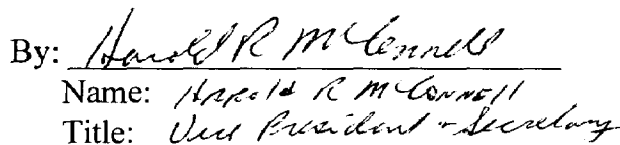 By: Harold R McConnell
Name: Harold R McConnell
Title: Vice President - Secretary